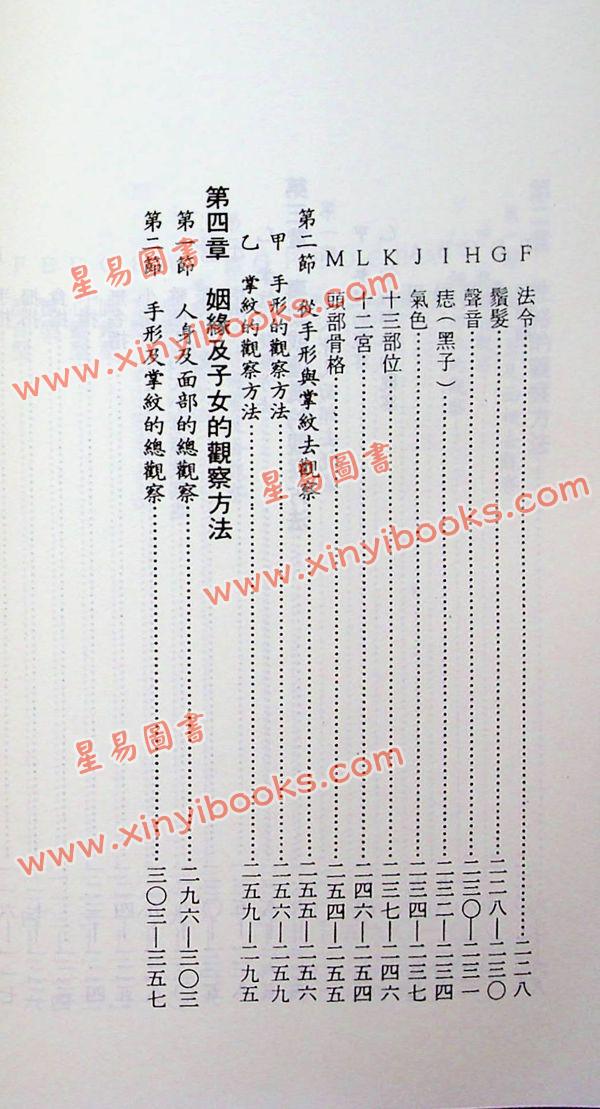 F 法令……二二八
G 鬚髮……二二八—二三〇
H 聲音……二三〇—二三一
I 痣（黑子）……二三二—二三四
J 氣色……二三四—二三七
K 十三部位……二三七—二四六
L 十二宮……二四六—二五四
M 頭部骨格……二五四—二五五
第二節 從手形與掌紋去觀察……二五五—二五六
甲 手形的觀察方法……二五六—二五九
乙 掌紋的觀察方法……二五九—二九五
第四章 姻緣及子女的觀察方法
第一節 人身及面部的總觀察……二九六—三〇三
第二節 手形及掌紋的總觀察……三〇三—三五七
星易圖書
www.xinyibooks.com
星易圖書
www.xinyibooks.com
星易圖書
www.xinyibooks.com